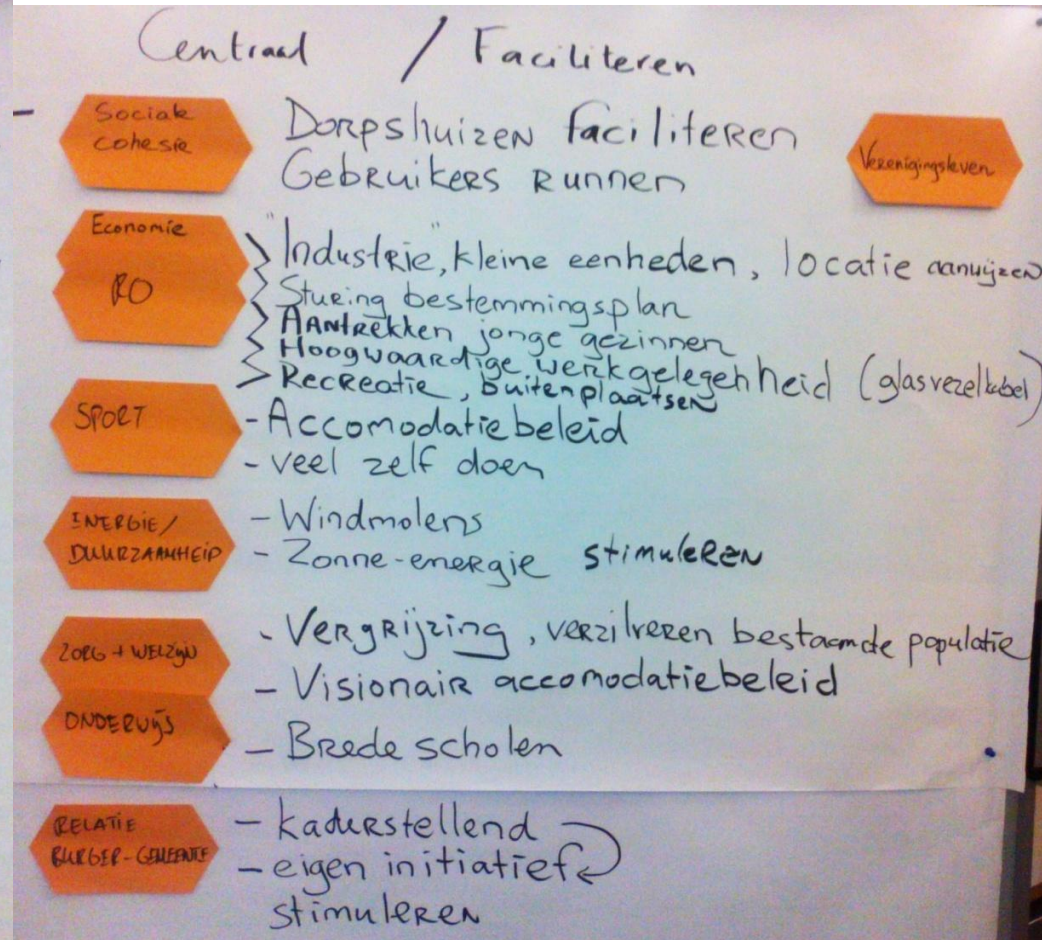 Centraal / Faciliteren
Sociale
cohesie
Dorpshuizen faciliteren
Gebruikers runnen
Verenigingsleven
Economie
RO
"Industrie", kleine eenheden, locatie aanwijzen
Sturing bestemmingsplan
Aantrekken jonge gezinnen
Hoogwaardige werkgelegenheid (glasvezelkabel)
Recreatie, buitenplaatsen
SPORT
- Accomodatiebeleid
- veel zelf doen
ENERGIE/
DUURZAAMHEID
- Windmolens
- Zonne-energie stimuleren
ZORG + WELZIJN
- Vergrijzing, verzilveren bestaande populatie
- Visionair accomodatiebeleid
ONDERWIJS
- Brede scholen
RELATIE
BURGER-GEMEENTE
- kaderstellend
- eigen initiatief
stimuleren